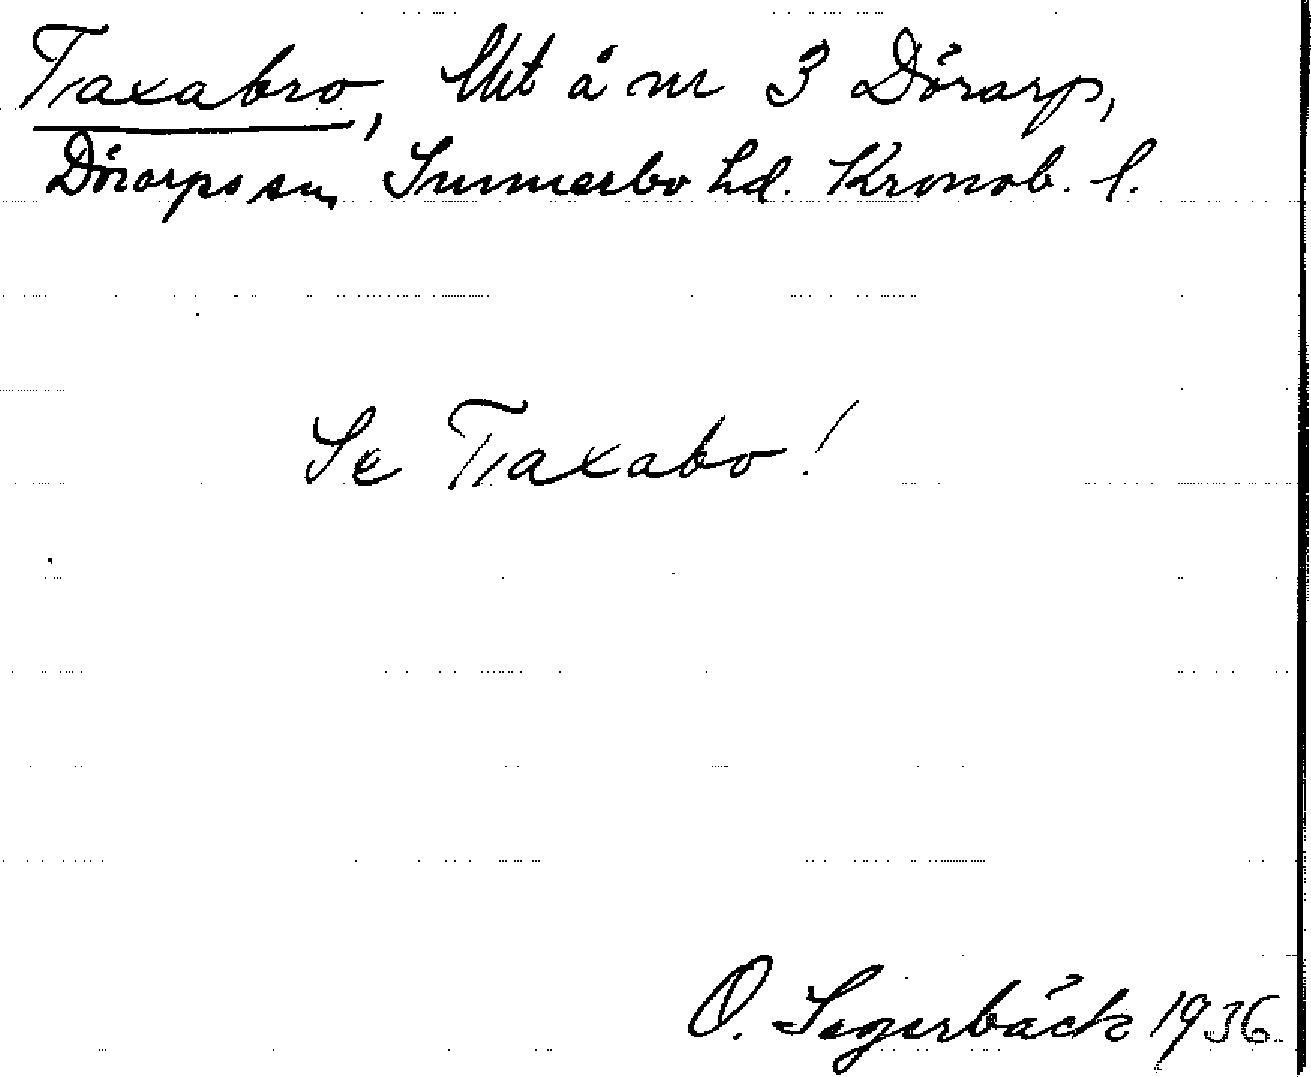 Taxabro, lht å nr 3 Dörarp,
Dörarps sn, Sunnerbo hd. Kronob. l.
Se Taxabo!
O. Segerbäck 1936.